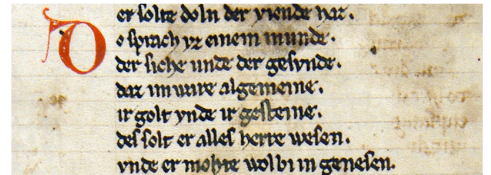 er solte doln der viende haz.
Do sprach vz einem munde.
der siche unde der gesvnde.
daz im ware algemeine.
ir golt vnde ir gesteine.
des solt er alles herre wesen.
vnde er mohte wol bi in genesen.